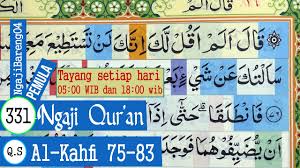 NgajiBareng04
PEMULA
قَالَ اَلَمْ اَقُلْ لَّكَ اِنَّكَ لَنْ تَسْتَطِيْعَ مَعِ
Tayang setiap hari
05:00 WIB dan 18:00 wib
سَاَلْتُكَ عَنْ شَيْ
331 Ngaji Qur'an
فَانْطَلَقَا حَتّٰٓى اِذَآ
Q.S Al-Kahfi 75-83
اَنْ يُّضَيِّفُوْهُمَا فَوَجَدَا